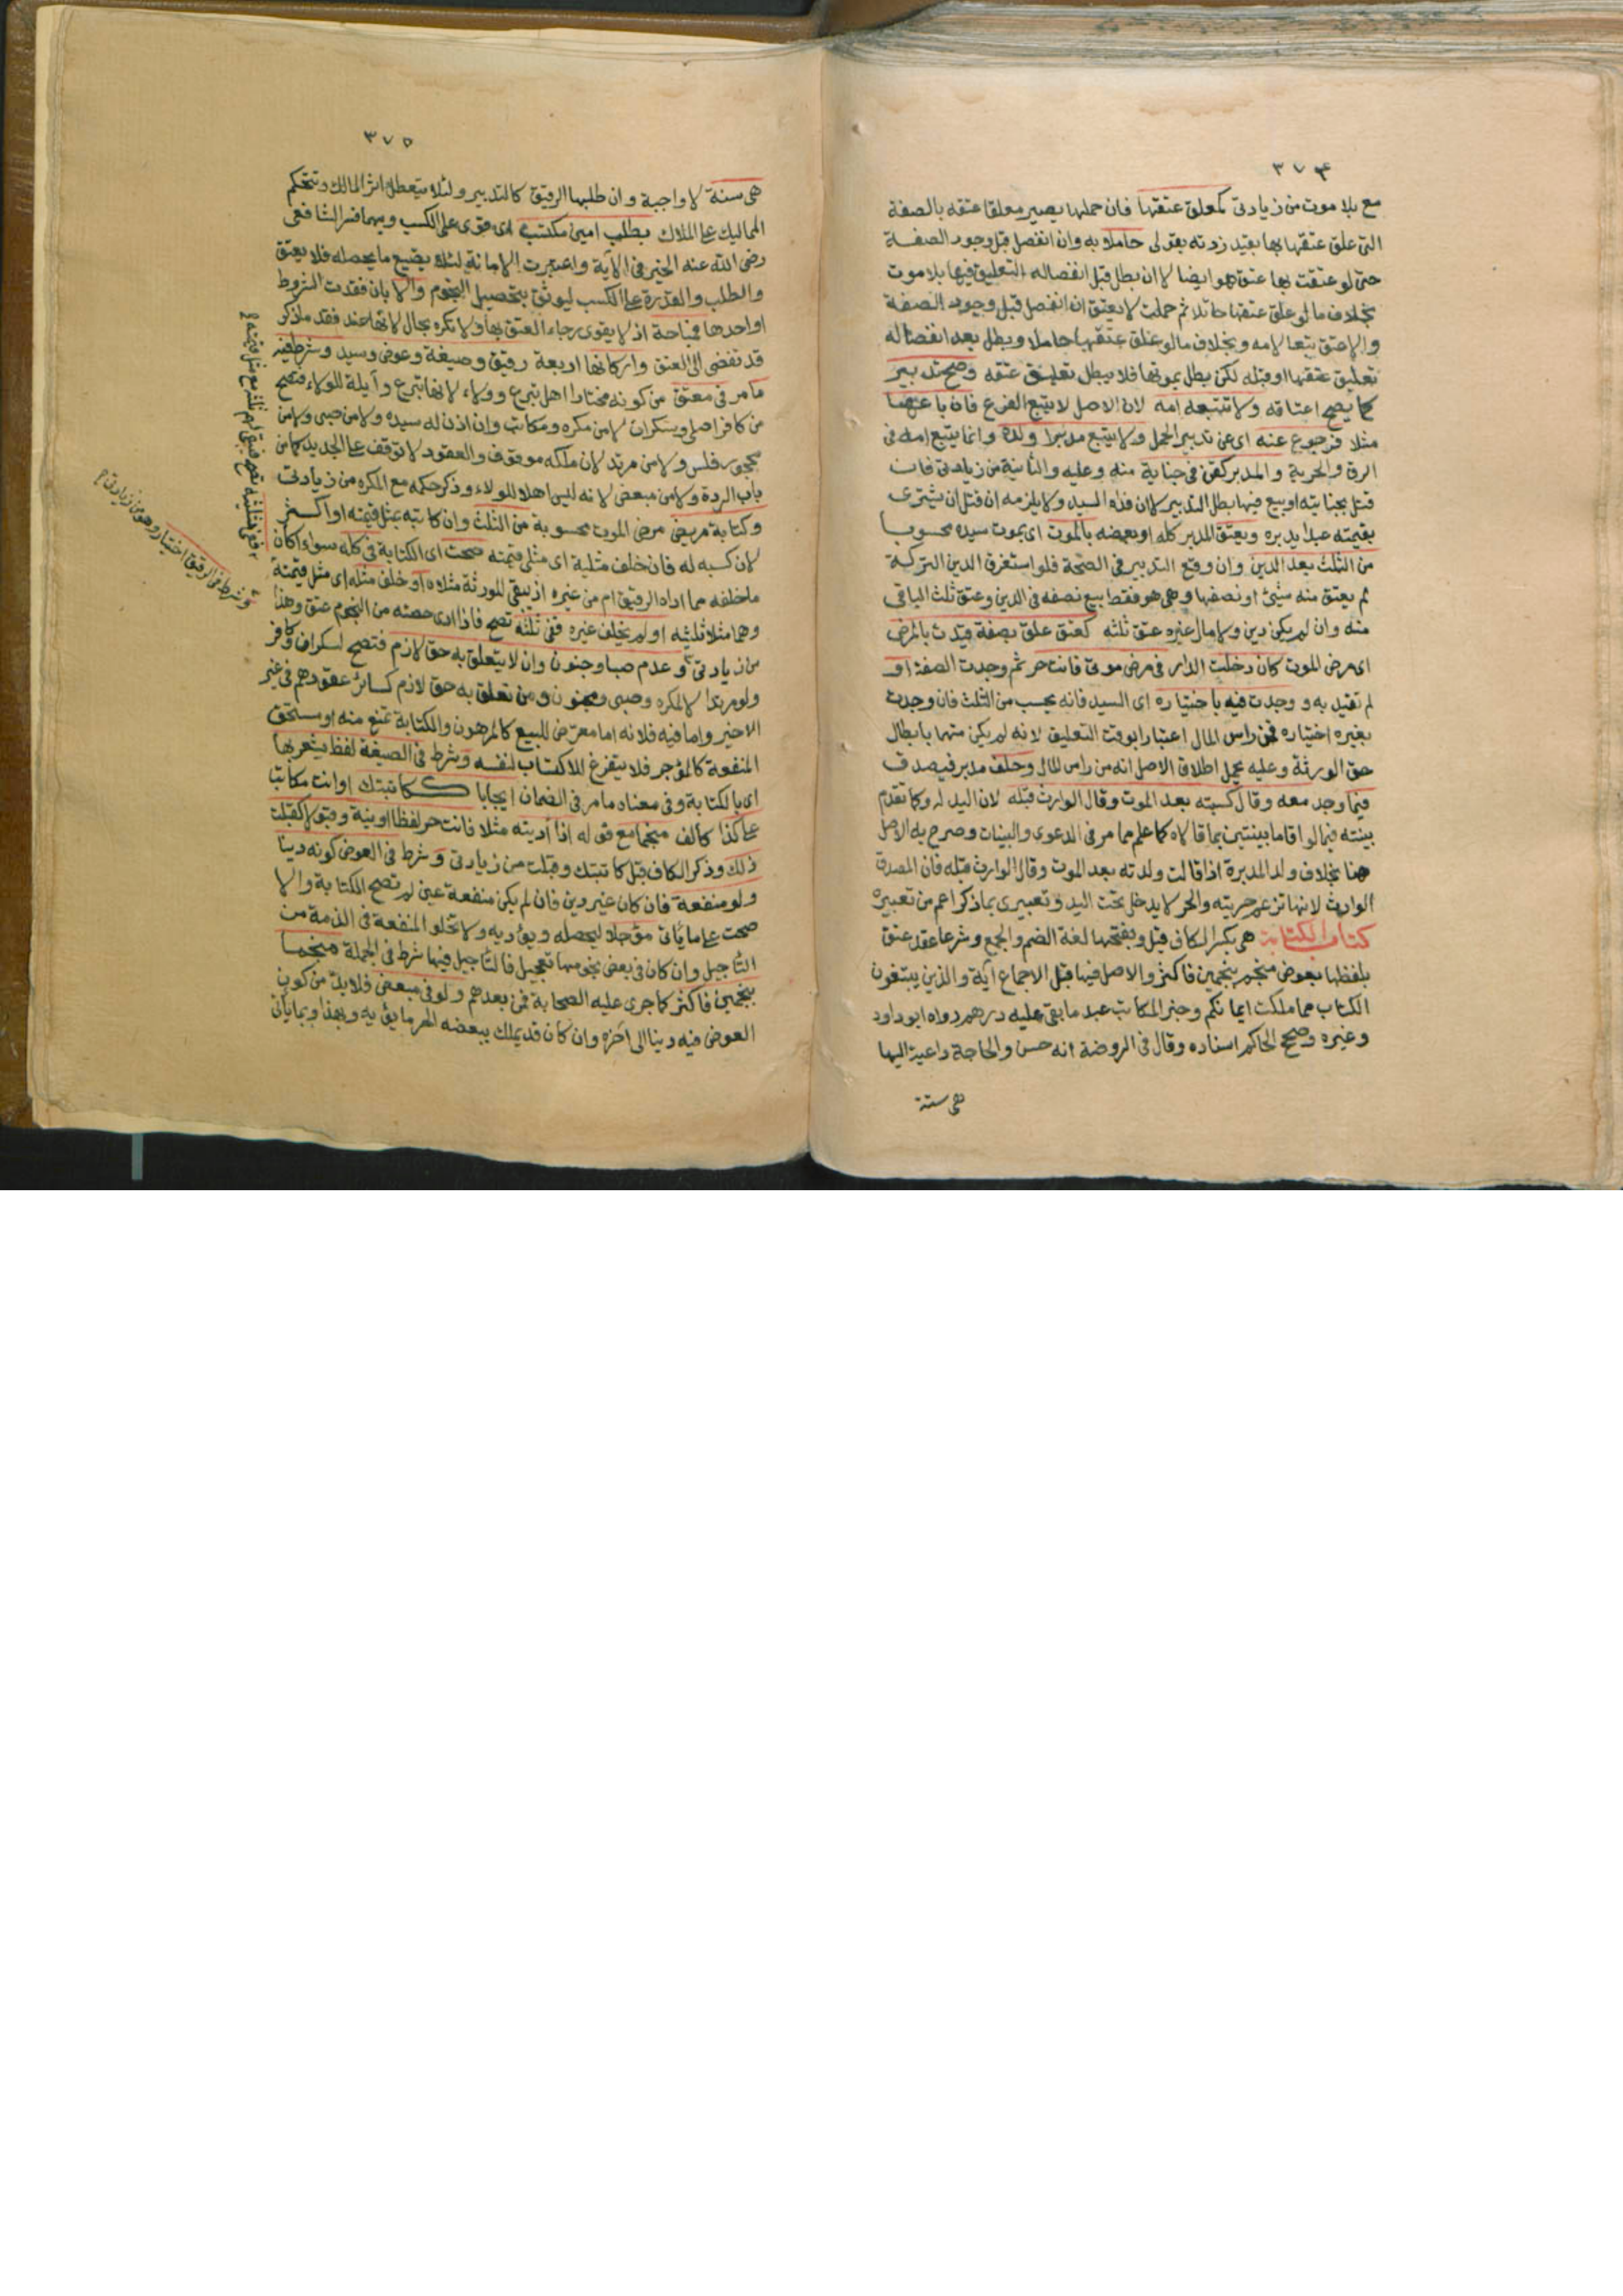 ٣٧٤
مع بلا موت من زيادتى كمعلق عتقها فان حملها يصير معلقا عتقه بالصفة
التى علق عتقها بها بقيد زدته بقولى حاملا به وان انفصل قبل وجود الصفة
حتى لو عتقت بها عتق هو ايضا لا ان بطل قبل انفصاله التعليق فيها بلا موت
بخلاف ما لو علق عتقها حائلا ثم حملت لا يعتق ان انفصل قبل وجود الصفة
والا عتق تبعا لامه وبخلاف ما لو علق عتقها حاملا وبطل بعد انفصاله
تعليق عتقها او قبله لكن بطل بموتها فلا يبطل تعليق عتقه وصح تدبير
كما يصح اعتاقه ولا تتبعه امه لان الاصل لا يتبع الفرع فان باعها
مثلا فرجوع عنه اى عن تدبير الحمل ولا يتبع مدبرا ولده وانما يتبع امه فى
الرق والحرية والمدبر كقن فى جناية منه وعليه والثانية من زيادتى فان
قتل بجنايته او بيع فيها بطل التدبير لا ان فداه السيد ولا يلزمه ان قتل ان يشترى
بقيمته عبدا يدبره ويعتق المدبر كله او بعضه بالموت اى بموت سيده محسوبا
من الثلث بعد الدين وان وقع التدبير فى الصحة فلو استغرق الدين التركة
لم يعتق منه شيئ او نصفها وهى هو فقط بيع نصفه فى الدين وعتق ثلث الباقى
منه وان لم يكن دين ولا مال غيره عتق ثلثه كعتق علق بصفة قيدت بالمرض
اى مرض الموت كان دخلت الدار فى مرض موتى فانت حر ثم وجدت الصفة او
لم تقيد به و وجدت فيه باختياره اى السيد فانه يحسب من الثلث فان وجدت
بغيره اختياره فمن راس المال اعتبارا بوقت التعليق لانه لم يكن متهما بابطال
حق الورثة وعليه يحمل اطلاق الاصل انه من راس المال وحلف مدبر فيصدق
فيما وجد معه وقال كسبته بعد الموت وقال الوارث قبله لان اليد له وكما تقدم
بينته فيما لو اقاما بينتين بما قالاه كما علم مما مر فى الدعوى والبينات وصرح به الاصل
هنا بخلاف ولد المدبرة اذا قالت ولدته بعد الموت وقال الوارث قبله فان المصدق
الوارث لانها تزعم حريته والحر لا يدخل تحت اليد وتعبيرى بما ذكر اعم من تعبيره
كتاب الكتابة هى بكسر الكاف قيل وبفتحها لغة الضم والجمع وشرعا عقد عتق
بلفظها بعوض منجم بنجمين فاكثر والاصل فيها قبل الاجماع آية والذين يبتغون
الكتاب مما ملكت ايمانكم وخبر المكاتب عبد ما بقى عليه درهم رواه ابو داود
وغيره وصحح الحاكم اسناده وقال فى الروضة انه حسن والحاجة داعية اليها
هى سنة
٣٧٥
هى سنة لا واجبة وان طلبها الرقيق كالتدبير ولئلا يتعطل اثر المالك وتتحكم
المماليك على الملاك بطلب امين مكتسب اى قوى على الكسب وبهما فسر الشافعى
رضى الله عنه الخير فى الآية واعتبرت الامانة لئلا يضيع ما يحصله فلا يعتق
والطلب والقدرة على الكسب ليوثق بتحصيل النجوم والا بان فقدت الشروط
او احدها فمباحة اذ لا يقوى رجاء العتق بها ولا تكره بحال لانها عند فقد ما ذكر
قد تفضى الى العتق واركانها اربعة رقيق وصيغة وعوض وسيد وشرط فيه
ما مر فى معتق من كونه مختارا اهل تبرع وولاء لانها تبرع وآيلة للولاء فتصح
من كافر اصلى وسكران لا من مكره ومكاتب وان اذن له سيده ولا من صبى ولا من
محجور فلس ولا من مرتد لان ملكه موقوف والعقود لا توقف على الجديد كما من
باب الردة ولا من مبعض لانه ليس اهلا للولاء وذكر حكمه مع المكره من زيادتى
وكتابة مريض مرض الموت محسوبة من الثلث وان كاتبه بمثل قيمته او اكثر
لان كسبه له فان خلف مثليه اى مثلى قيمته صحت اى الكتابة فى كله سواء اكان
ما خلفه مما اداه الرقيق ام من غيره اذ يبقى للورثة مثلاه او خلف مثله اى مثل قيمته
وهما مثلا ثلثيه او لم يخلف غيره ففى ثلثه تصح فاذا ادى حصته من النجوم عتق وهذا
من زيادتى و عدم صبا وجنون وان لا يتعلق به حق لازم فتصح لسكران وكافر
ولو مرتدا لا لمكره وصبى ومجنون ومن تعلق به حق لازم كسائر عقودهم فى غير
الاخير واما فيه فلانه اما معرض للبيع كالمرهون والكتابة تمنع منه او مستحق
المنفعة كالمؤجر فلا يتفرغ للاكتساب لنفسه وشرط فى الصيغة لفظ يشعر بها
اى بالكتابة وفى معناه ما مر فى الضمان ايجابا ككاتبتك او انت مكاتب
على كذا كالف منجما مع قوله اذا أديته مثلا فانت حر لفظا او نية وقبولا كقبلت
ذلك وذكر الكاف قبل كاتبتك وقبلت من زيادتى وشرط فى العوض كونه دينا
ولو منفعة فان كان غير دين فان لم يكن منفعة عين لم تصح الكتابة والا
صحت على ما يأتى مؤجلا ليحصله ويؤديه ولا تخلو المنفعة فى الذمة من
التأجيل وان كان فى بعض نجومها تعجيل فالتأجيل فيها شرط فى الجملة منجما
بنجمين فاكثر كما جرى عليه الصحابة فمن بعدهم ولو فى مبعض فلا بد من كون
العوض فيه دينا الى آخره وان كان قد يملك ببعضه الحر ما يؤديه وبهذا وبما يأتى
وشرط فى الرقيق اختيار وهو من زيادتى